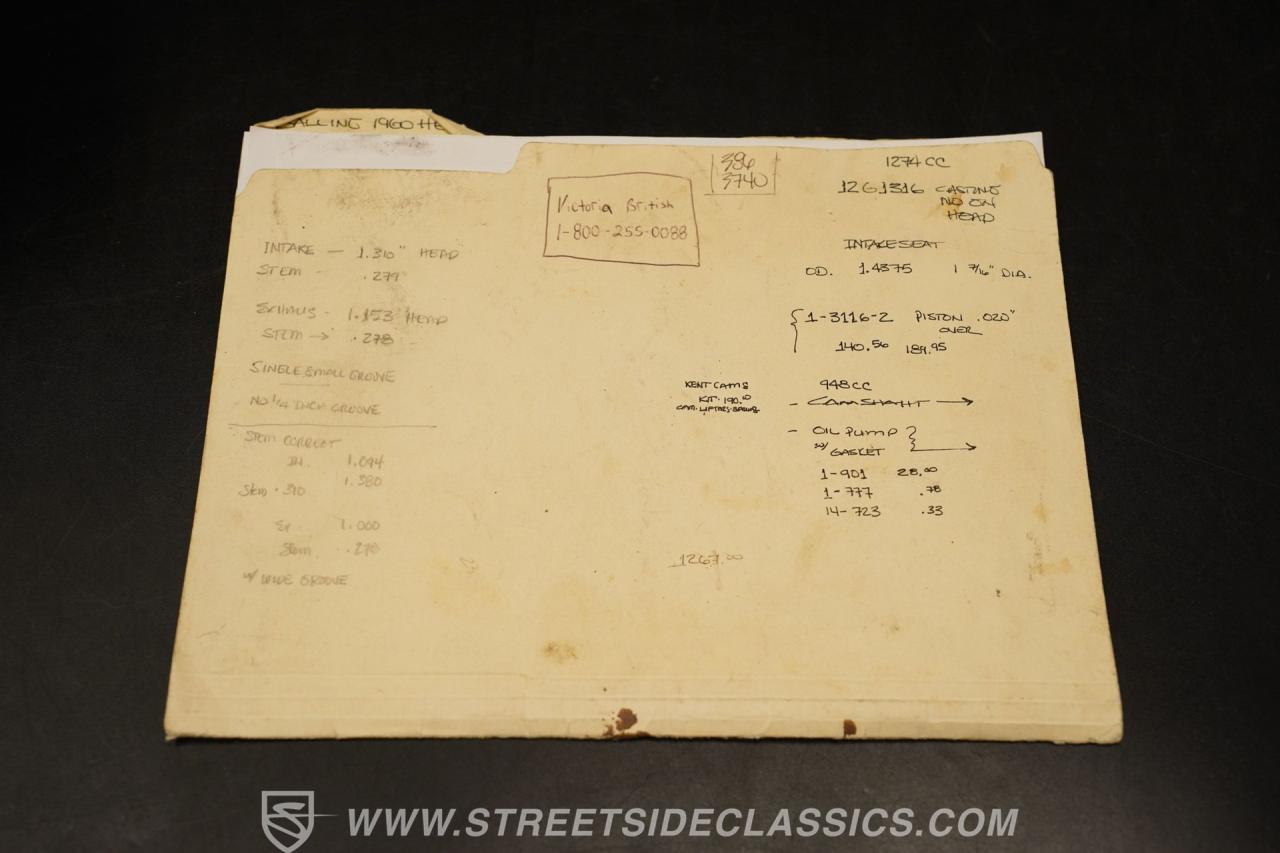 ALLING 1960 HE
386
3740
1274 CC
12G1316 CASTING
NO ON
HEAD
Victoria British
1-800-255-0088
INTAKE — 1.310" HEAD
STEM - .279
EXHAUS - 1.153 HEAD
STEM → .278
SINGLE SMALL GROOVE
NO 1/4 INCH GROOVE
STEM CORRECT
IN. 1.094
1.380
Stem
Ex 1.000
Stem .279
W/ WIDE GROOVE
INTAKE SEAT
OD. 1.4375 1 7/16" DIA.
1-3116-2 PISTON .020"
OVER
140.56 189.95
KENT CAMS
KIT. 190.00
CAM. LIFTERS.
948 CC
- CAMSHAFT →
- OIL PUMP
W/ GASKET →
1-901 28.00
1-777 .78
14-723 .33
1267.00
WWW.STREETSIDECLASSICS.COM